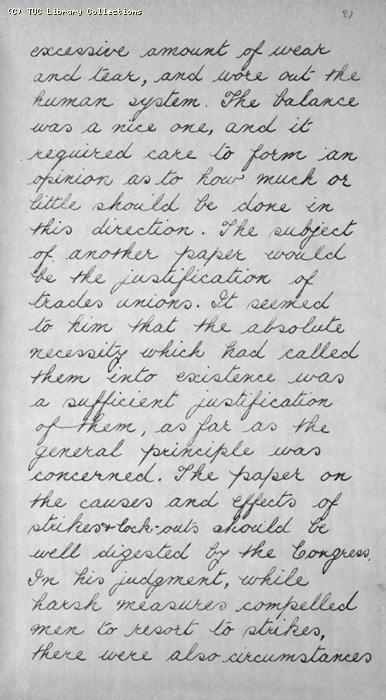 (C) TUC Library Collections
21
excessive amount of wear
and tear, and wore out the
human system. The balance
was a nice one, and it
required care to form an
opinion as to how much or
little should be done in
this direction. The subject
of another paper would
be the justification of
trades unions. It seemed
to him that the absolute
necessity which had called
them into existence was
a sufficient justification
of them, as far as the
general principle was
concerned. The paper on
the causes and effects of
strikes & lock-outs should be
well digested by the Congress.
In his judgment, while
harsh measures compelled
men to resort to strikes,
there were also circumstances